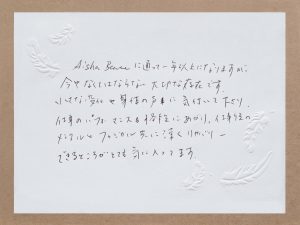 Aisha Banu に通って一年以上になりますが、
今やなくてはならない大切な存在です。
小さな変化や身体の声に気付いて下さり、
仕事のパフォーマンスも格段にあがり、仕事後の
メンタルもフィジカルも共に深くリカバリー
できるところがとても気に入ってます。